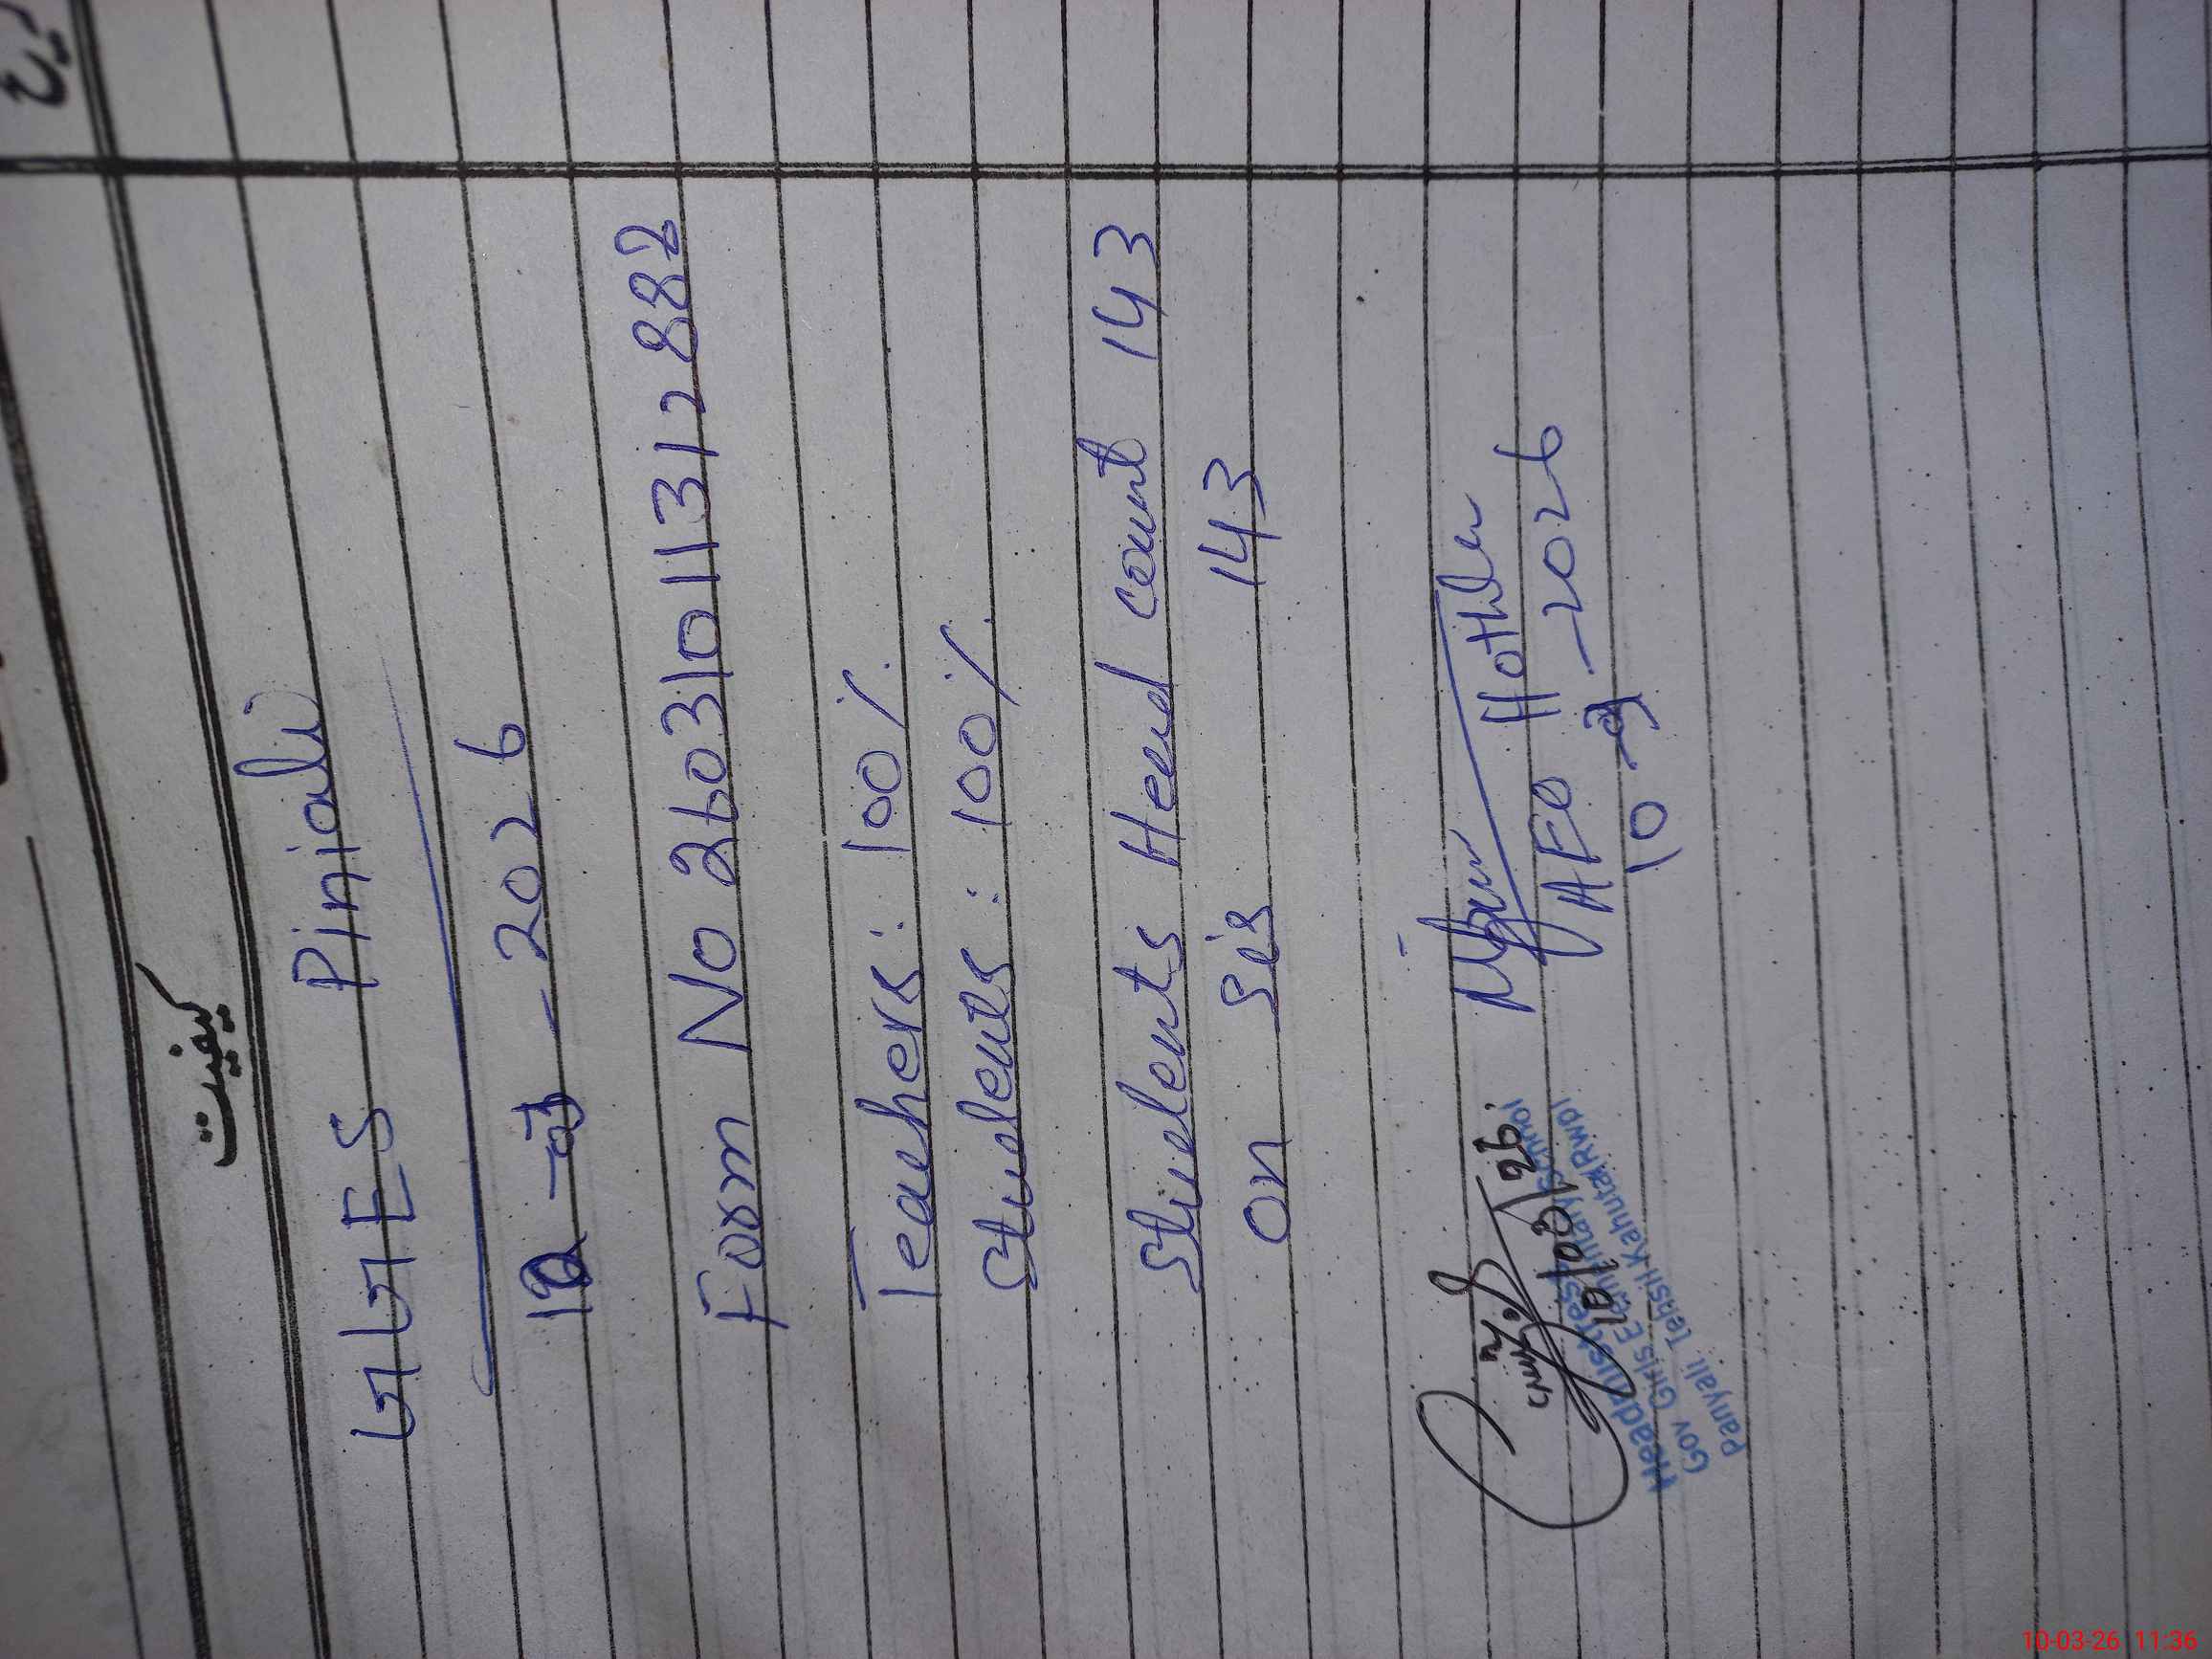 کیفیت
GGES Piniali
10-03-2026
Form No 26031011312882
Teachers: 100%
Students: 100%
Students Head count 143
on sis 143
AEO Hothla
10-3-2026
10/03/26
Headmistress
Gov Girls Elementary School
Panyali Tehsil Kahuta Rwpi
10-03-26 11:36